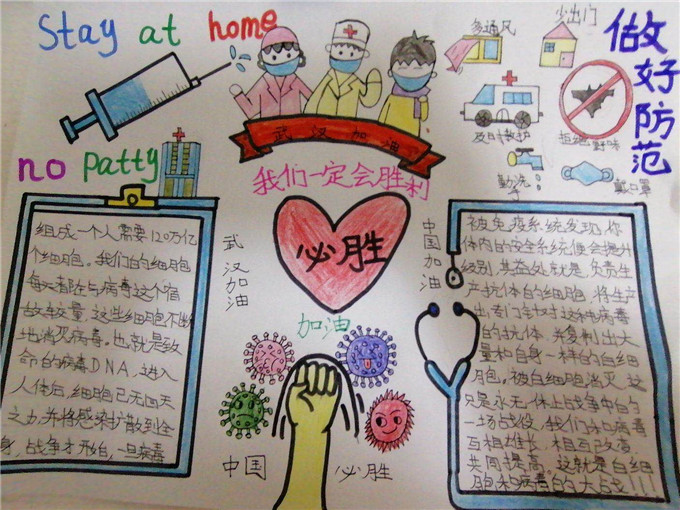 Stay at home
多通风
少出门
做好防范
武汉加油
及时救护
拒绝野味
no patty
我们一定会胜利
勤洗手
戴口罩
组成一个人需要120万亿
个细胞。我们的细胞
每天都在与病毒这个宿
故较量。这些细胞不断
地消灭病毒。也就是致
命的病毒DNA,进入
人体后,细胞已无回天
之力,并将感染扩散到全
身,战争才开始,一旦病毒
武汉加油
必胜
中国加油
加油
中国
必胜
被免疫系统发现,你
体内的安全系统便会提升
级别,其益处就是负责生
产抗体的细胞,将生产
出专门针对这种病毒
的抗体,并复制出大
量和自身一样的白细
胞,被白细胞消灭,这
只是永无休止战争中的
一场战役,我们和病毒
互相增长,相互改变
共同提高。这就是白细
胞和病毒的大战!!!